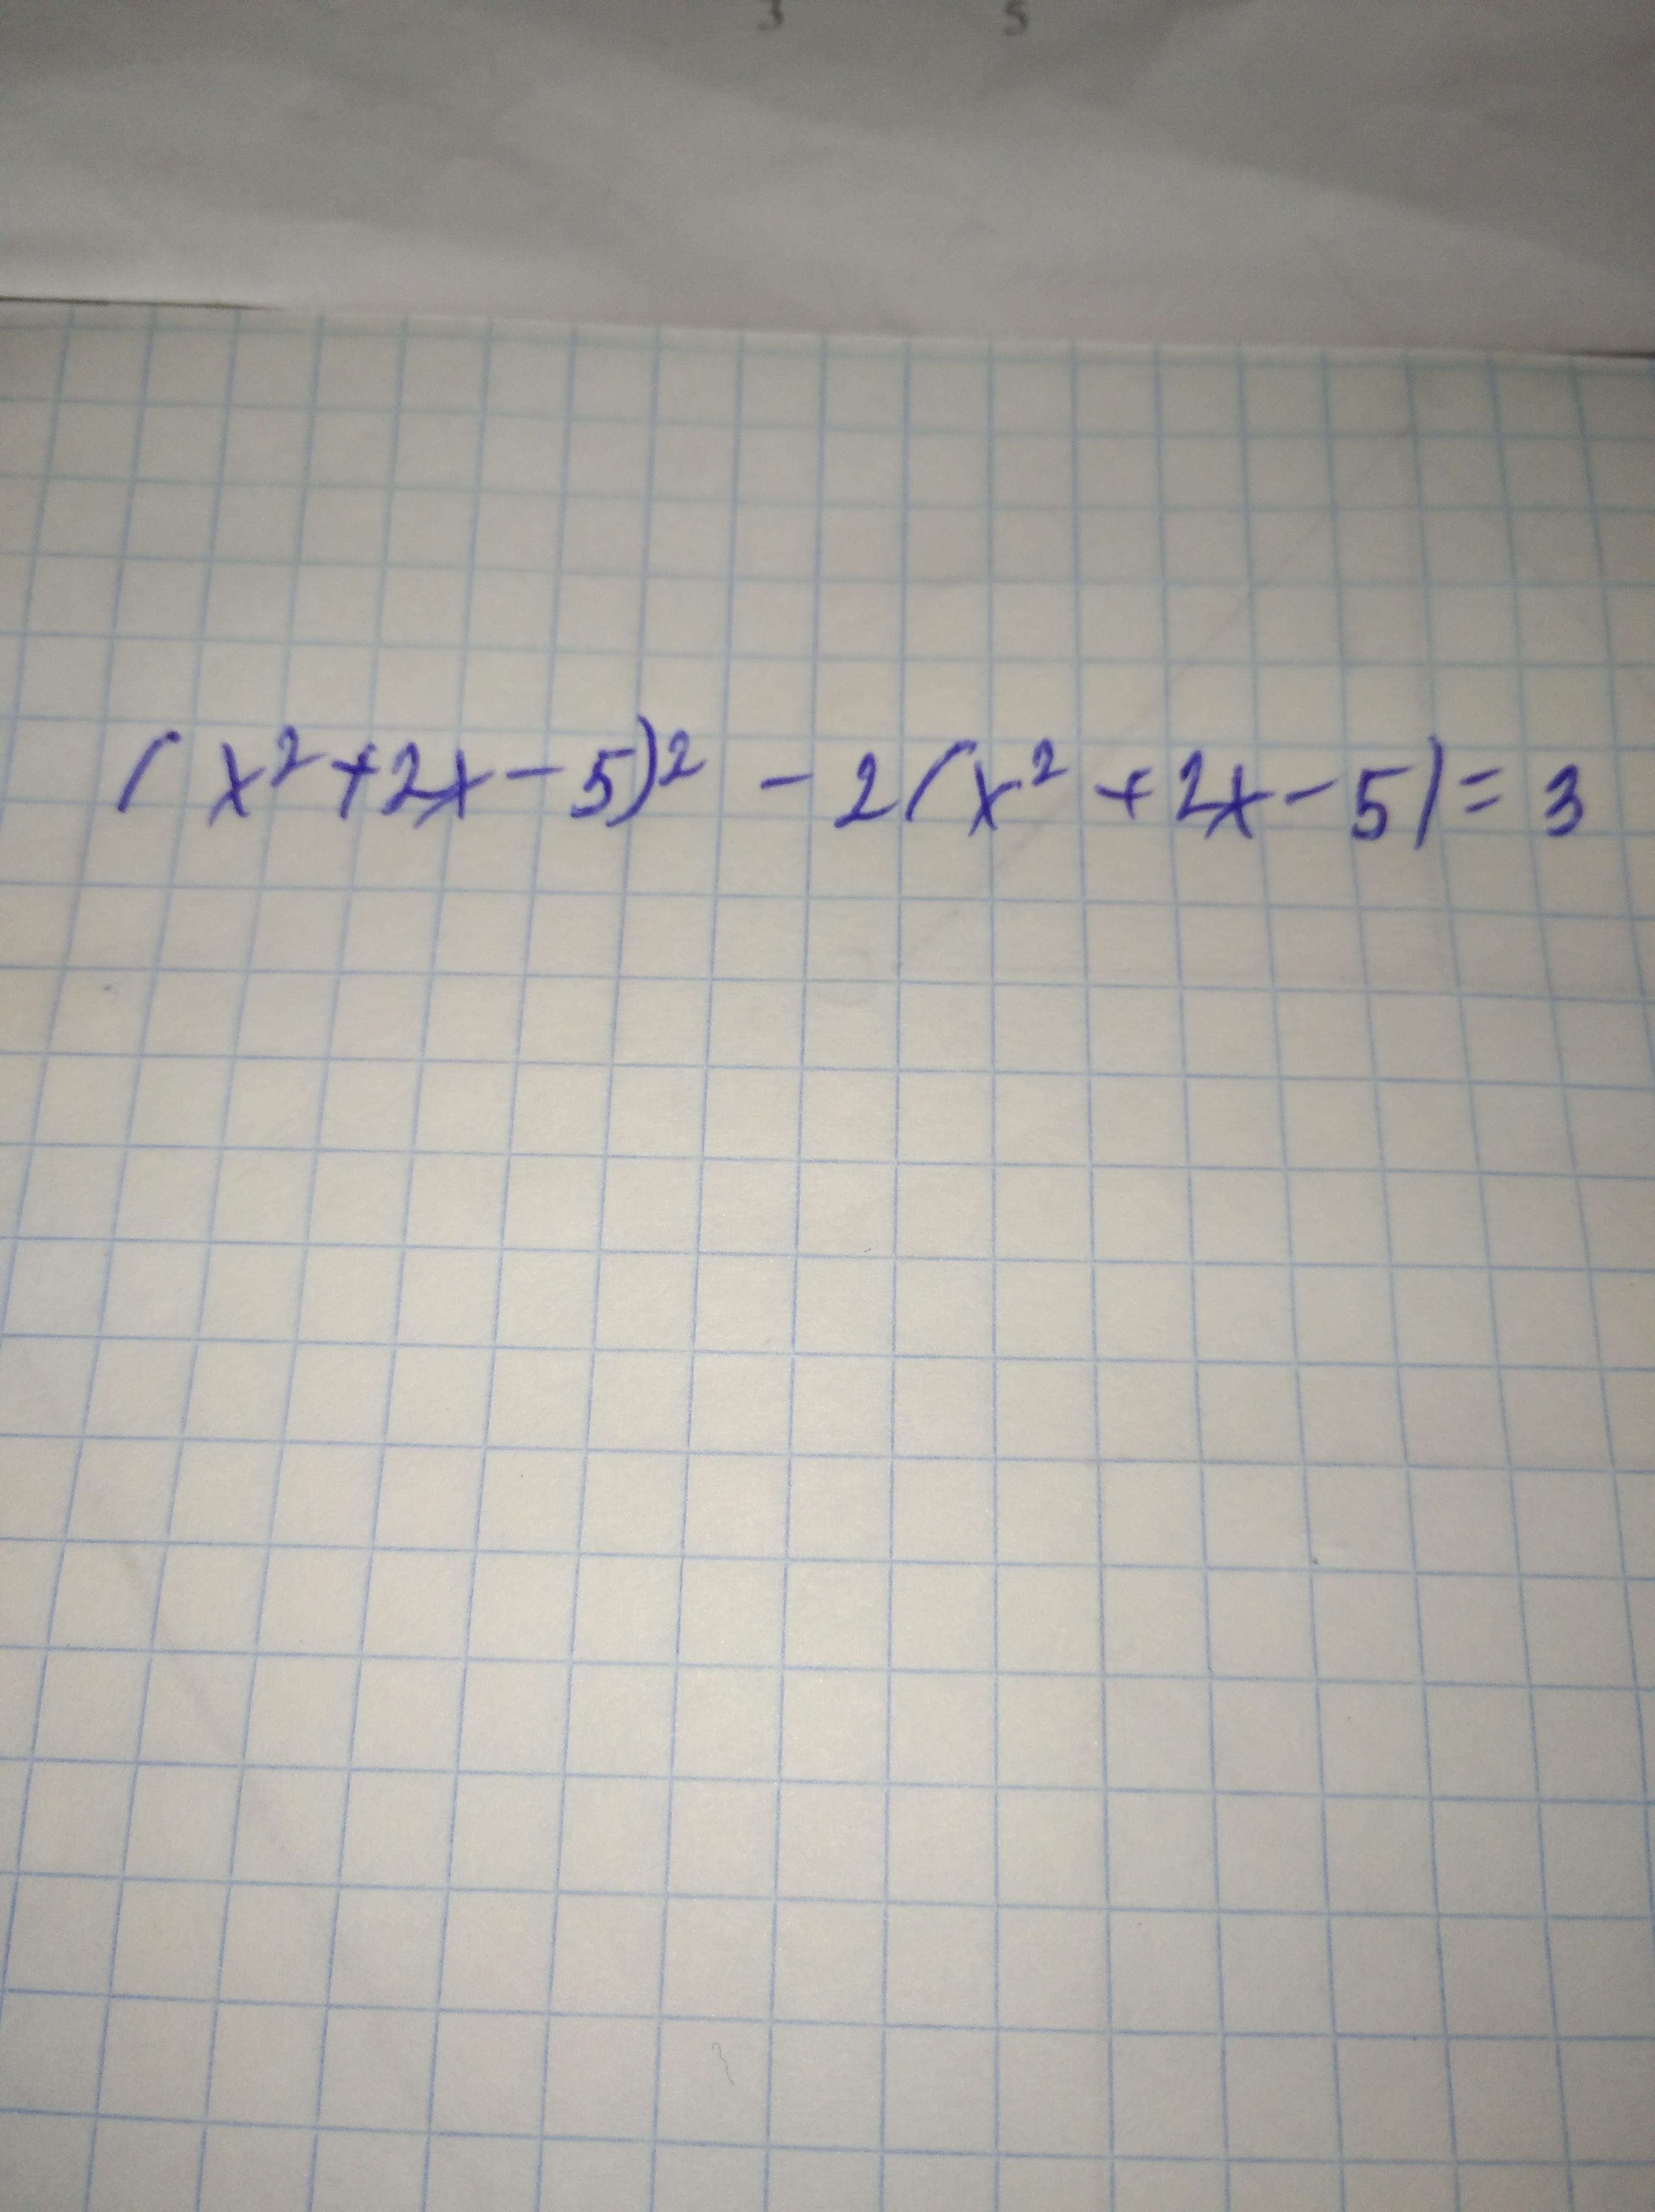 3 5
(x²+2x-5)² - 2(x²+2x-5)=3